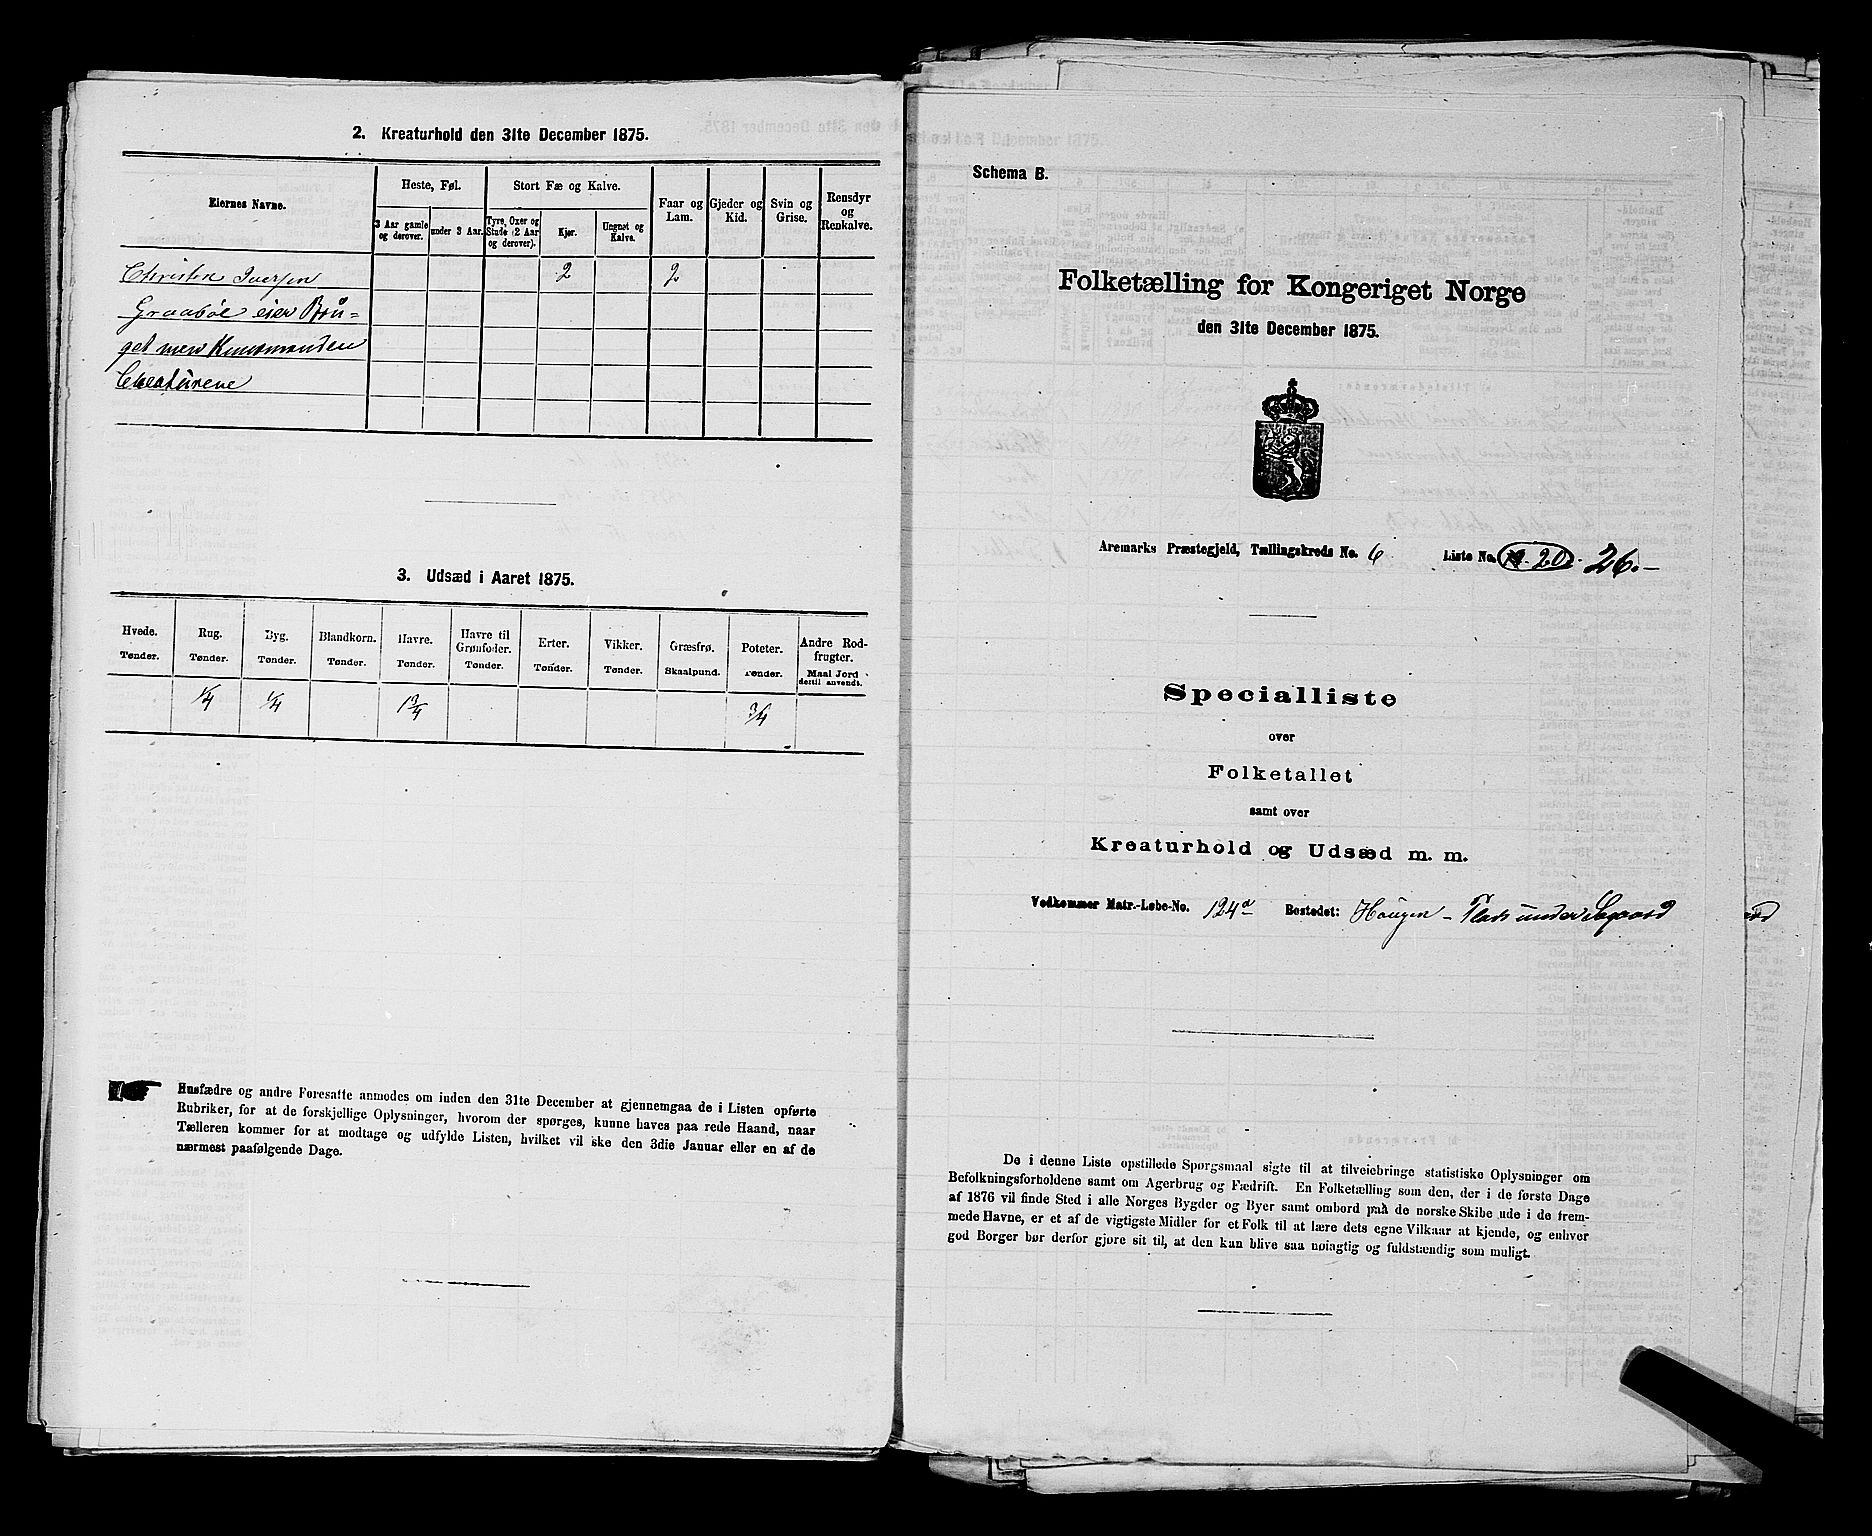 2. Kreaturhold den 31te December 1875.
Eiernes Navne.
Heste, Føl.
3 Aar gamle og derover.
under 3 Aar.
Stort Fæ og Kalve.
Tyre, Oxer og Stude (2 Aar og derover).
Kjør.
Ungnøt og Kalve.
Faar og Lam.
Gjeder og Kid.
Svin og Grise.
Rensdyr og Renkalve.
Christen Iversen 2 2
Graabøl eier Brü=
get men Kunsmanden
Creatürene
3. Udsæd i Aaret 1875.
Hvede. Tønder.
Rug. Tønder.
Byg. Tønder.
Blandkorn. Tønder.
Havre. Tønder.
Havre til Grønfoder. Tønder.
Erter. Tønder.
Vikker. Tønder.
Græsfrø. Skaalpund.
Poteter. Tønder.
Andre Rodfrugter. Maal Jord dertil anvendt.
1/4 1/4 1 3/4 3/4
Husfædre og andre Foresatte anmodes om inden den 31te December at gjennemgaa de i Listen opførte
Rubriker, for at de forskjellige Oplysninger, hvorom der spørges, kunne haves paa rede Haand, naar
Tælleren kommer for at modtage og udfylde Listen, hvilket vil ske den 3die Januar eller en af de
nærmest paafølgende Dage.
Schema B.
Folketælling for Kongeriget Norge
den 31te December 1875.
Aremarks Præstegjeld, Tællingskreds No. 6 Liste No. 20. 26.-
Specialliste
over
Folketallet
samt over
Kreaturhold og Udsæd m. m.
Vedkommer Matr.-Løbe-No. 124a Bostedet: Haügen - Plads under Søgaard
De i denne Liste opstillede Spørgsmaal sigte til at tilveiebringe statistiske Oplysninger om
Befolkningsforholdene samt om Agerbrug og Fædrift. En Folketælling som den, der i de første Dage
af 1876 vil finde Sted i alle Norges Bygder og Byer samt ombord paa de norske Skibe ude i de frem-
mede Havne, er et af de vigtigste Midler for et Folk til at lære dets egne Vilkaar at kjende, og enhver
god Borger bør derfor gjøre sit til, at den kan blive saa nøiagtig og fuldstændig som muligt.